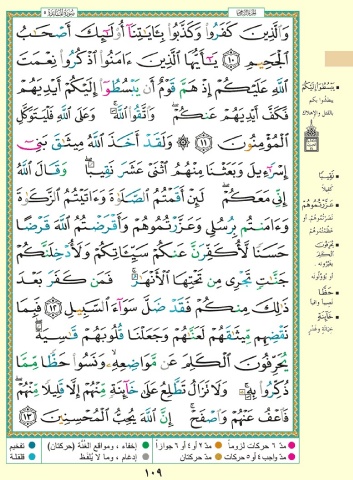 سُورَةُ المَائِدَة ٥
الجزء السادس
وَٱلَّذِينَ كَفَرُوا۟ وَكَذَّبُوا۟ بِـَٔايَٰتِنَآ أُو۟لَٰٓئِكَ أَصْحَٰبُ
ٱلْجَحِيمِ ١٠ يَٰٓأَيُّهَا ٱلَّذِينَ ءَامَنُوا۟ ٱذْكُرُوا۟ نِعْمَتَ
ٱللَّهِ عَلَيْكُمْ إِذْ هَمَّ قَوْمٌ أَن يَبْسُطُوٓا۟ إِلَيْكُمْ أَيْدِيَهُمْ
فَكَفَّ أَيْدِيَهُمْ عَنكُمْ ۖ وَٱتَّقُوا۟ ٱللَّهَ ۚ وَعَلَى ٱللَّهِ فَلْيَتَوَكَّلِ
ٱلْمُؤْمِنُونَ ١١ ۞ وَلَقَدْ أَخَذَ ٱللَّهُ مِيثَٰقَ بَنِىٓ
إِسْرَٰٓءِيلَ وَبَعَثْنَا مِنْهُمُ ٱثْنَىْ عَشَرَ نَقِيبًا ۖ وَقَالَ ٱللَّهُ
إِنِّى مَعَكُمْ ۖ لَئِنْ أَقَمْتُمُ ٱلصَّلَوٰةَ وَءَاتَيْتُمُ ٱلزَّكَوٰةَ
وَءَامَنتُم بِرُسُلِى وَعَزَّرْتُمُوهُمْ وَأَقْرَضْتُمُ ٱللَّهَ قَرْضًا
حَسَنًا لَّأُكَفِّرَنَّ عَنكُمْ سَيِّـَٔاتِكُمْ وَلَأُدْخِلَنَّكُمْ
جَنَّٰتٍ تَجْرِى مِن تَحْتِهَا ٱلْأَنْهَٰرُ ۚ فَمَن كَفَرَ بَعْدَ
ذَٰلِكَ مِنكُمْ فَقَدْ ضَلَّ سَوَآءَ ٱلسَّبِيلِ ١٢ فَبِمَا
نَقْضِهِم مِّيثَٰقَهُمْ لَعَنَّٰهُمْ وَجَعَلْنَا قُلُوبَهُمْ قَٰسِيَةً ۖ
يُحَرِّفُونَ ٱلْكَلِمَ عَن مَّوَاضِعِهِۦ ۙ وَنَسُوا۟ حَظًّا مِّمَّا
ذُكِّرُوا۟ بِهِۦ ۚ وَلَا تَزَالُ تَطَّلِعُ عَلَىٰ خَآئِنَةٍ مِّنْهُمْ إِلَّا قَلِيلًا مِّنْهُمْ ۖ
فَٱعْفُ عَنْهُمْ وَٱصْفَحْ ۚ إِنَّ ٱللَّهَ يُحِبُّ ٱلْمُحْسِنِينَ ١٣
يَبْسُطُوا إِلَيْكُمْ
يبطشوا بكم
بالقتل والإهلاك
نَقِيبًا
كفيلاً
عَزَّرْتُمُوهُمْ
نصرتموهم أو
عظّمتموهم
يُحَرِّفُونَ
يغيّرونه
أو يؤوّلونه
حَظًّا
نصيباً وافياً
خَآئِنَةٍ
خيانة وغدر
مدّ ٦ حركات لزوماً
مدّ ٢ أو ٤ أو ٦ جوازاً
إخفاء، ومواقع الغُنَّة (حركتان)
تفخيم
مدّ واجب ٤ أو ٥ حركات
مدّ حركتان
إدغام، وما لا يُلفَظ
قلقلة
١٠٩